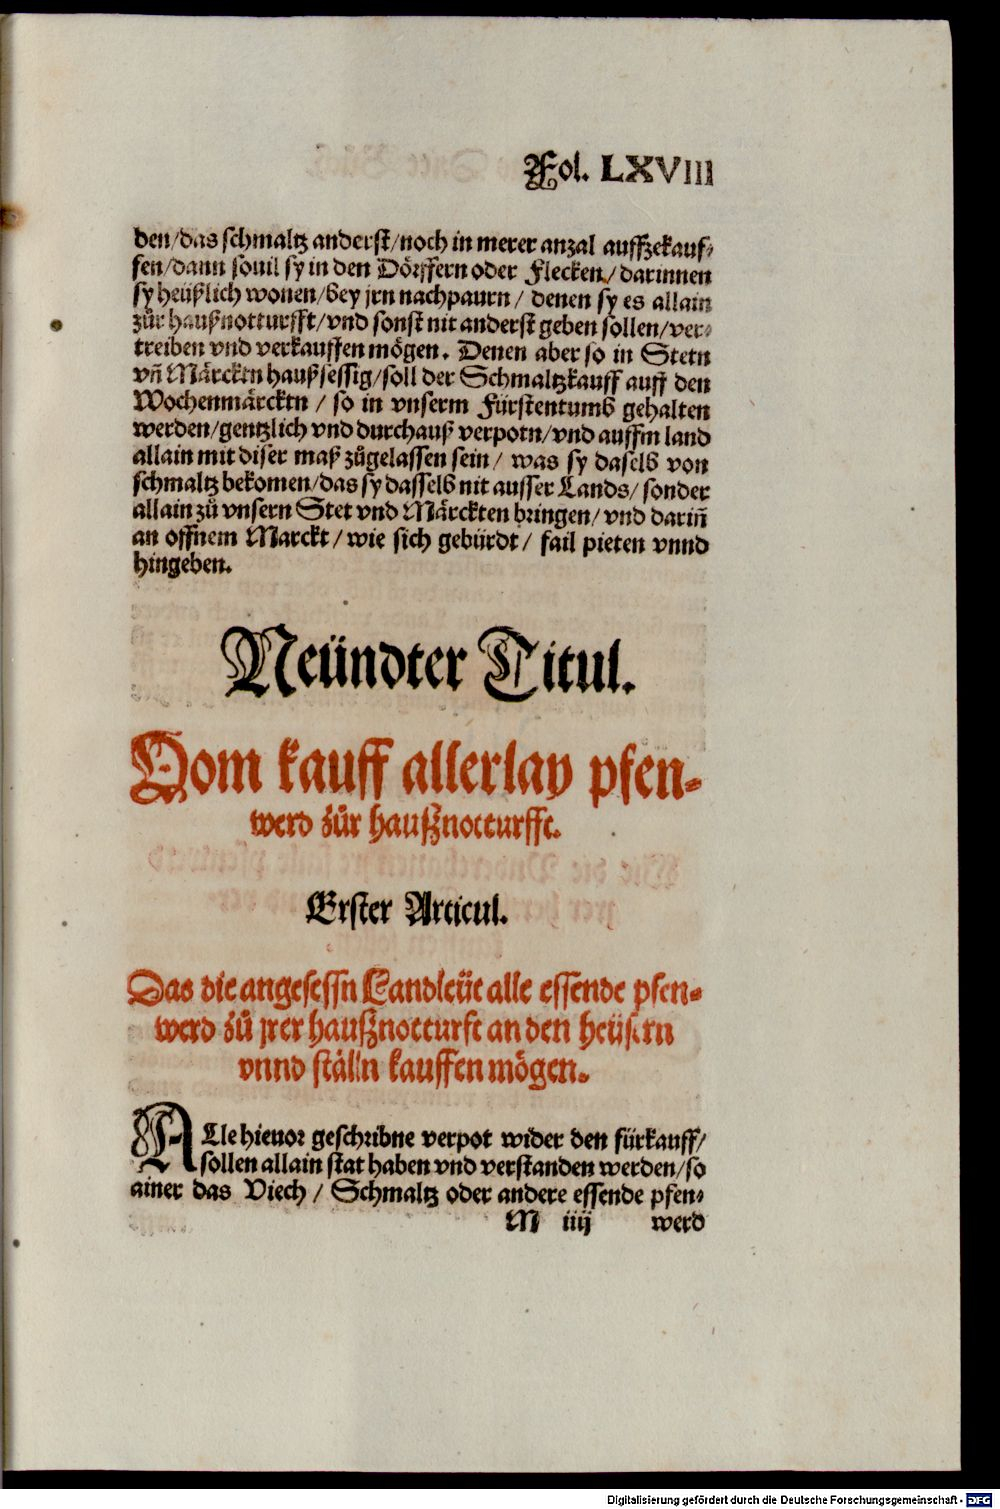 Fol. LXVIII
den/das schmaltz anderst/noch in merer anzal auffzekauf⸗
fen/dann souil sy in den Dörffern oder Flecken/darinnen
sy heüßlich wonen/bey jrn nachpaurn/ denen sy es allain
zůr haußnotturfft/vnd sonst nit anderst geben sollen/ver⸗
treiben vnd verkauffen mögen. Denen aber so in Stetn
vn̄ Märcktn haußsessig/soll der Schmaltzkauff auff den
Wochenmärcktn / so in vnserm Fürstentumb gehalten
werden/gentzlich vnd durchauß verpotn/vnd auffm land
allain mit diser maß zůgelassen sein/ was sy daselb von
schmaltz bekomen/das sy dasselb nit ausser Lands/ sonder
allain zů vnsern Stet vnd Märckten bringen/ vnd darin̄
an offnem Marckt/wie sich gebürdt/ fail pieten vnnd
hingeben.
Neündter Titul.
Vom kauff allerlay pfen⸗
werd zůr haußnotturfft.
Erster Articul.
Das die angesessn Landleüt alle essende pfen⸗
werd zů jrer haußnotturft an den heüsern
vnnd ställn kauffen mögen.
ALle hieuor geschribne verpot wider den fürkauff/
sollen allain stat haben vnd verstanden werden/so
ainer das Viech/ Schmaltz oder andere essende pfen⸗
M iiij werd
Digitalisierung gefördert durch die Deutsche Forschungsgemeinschaft - DFG